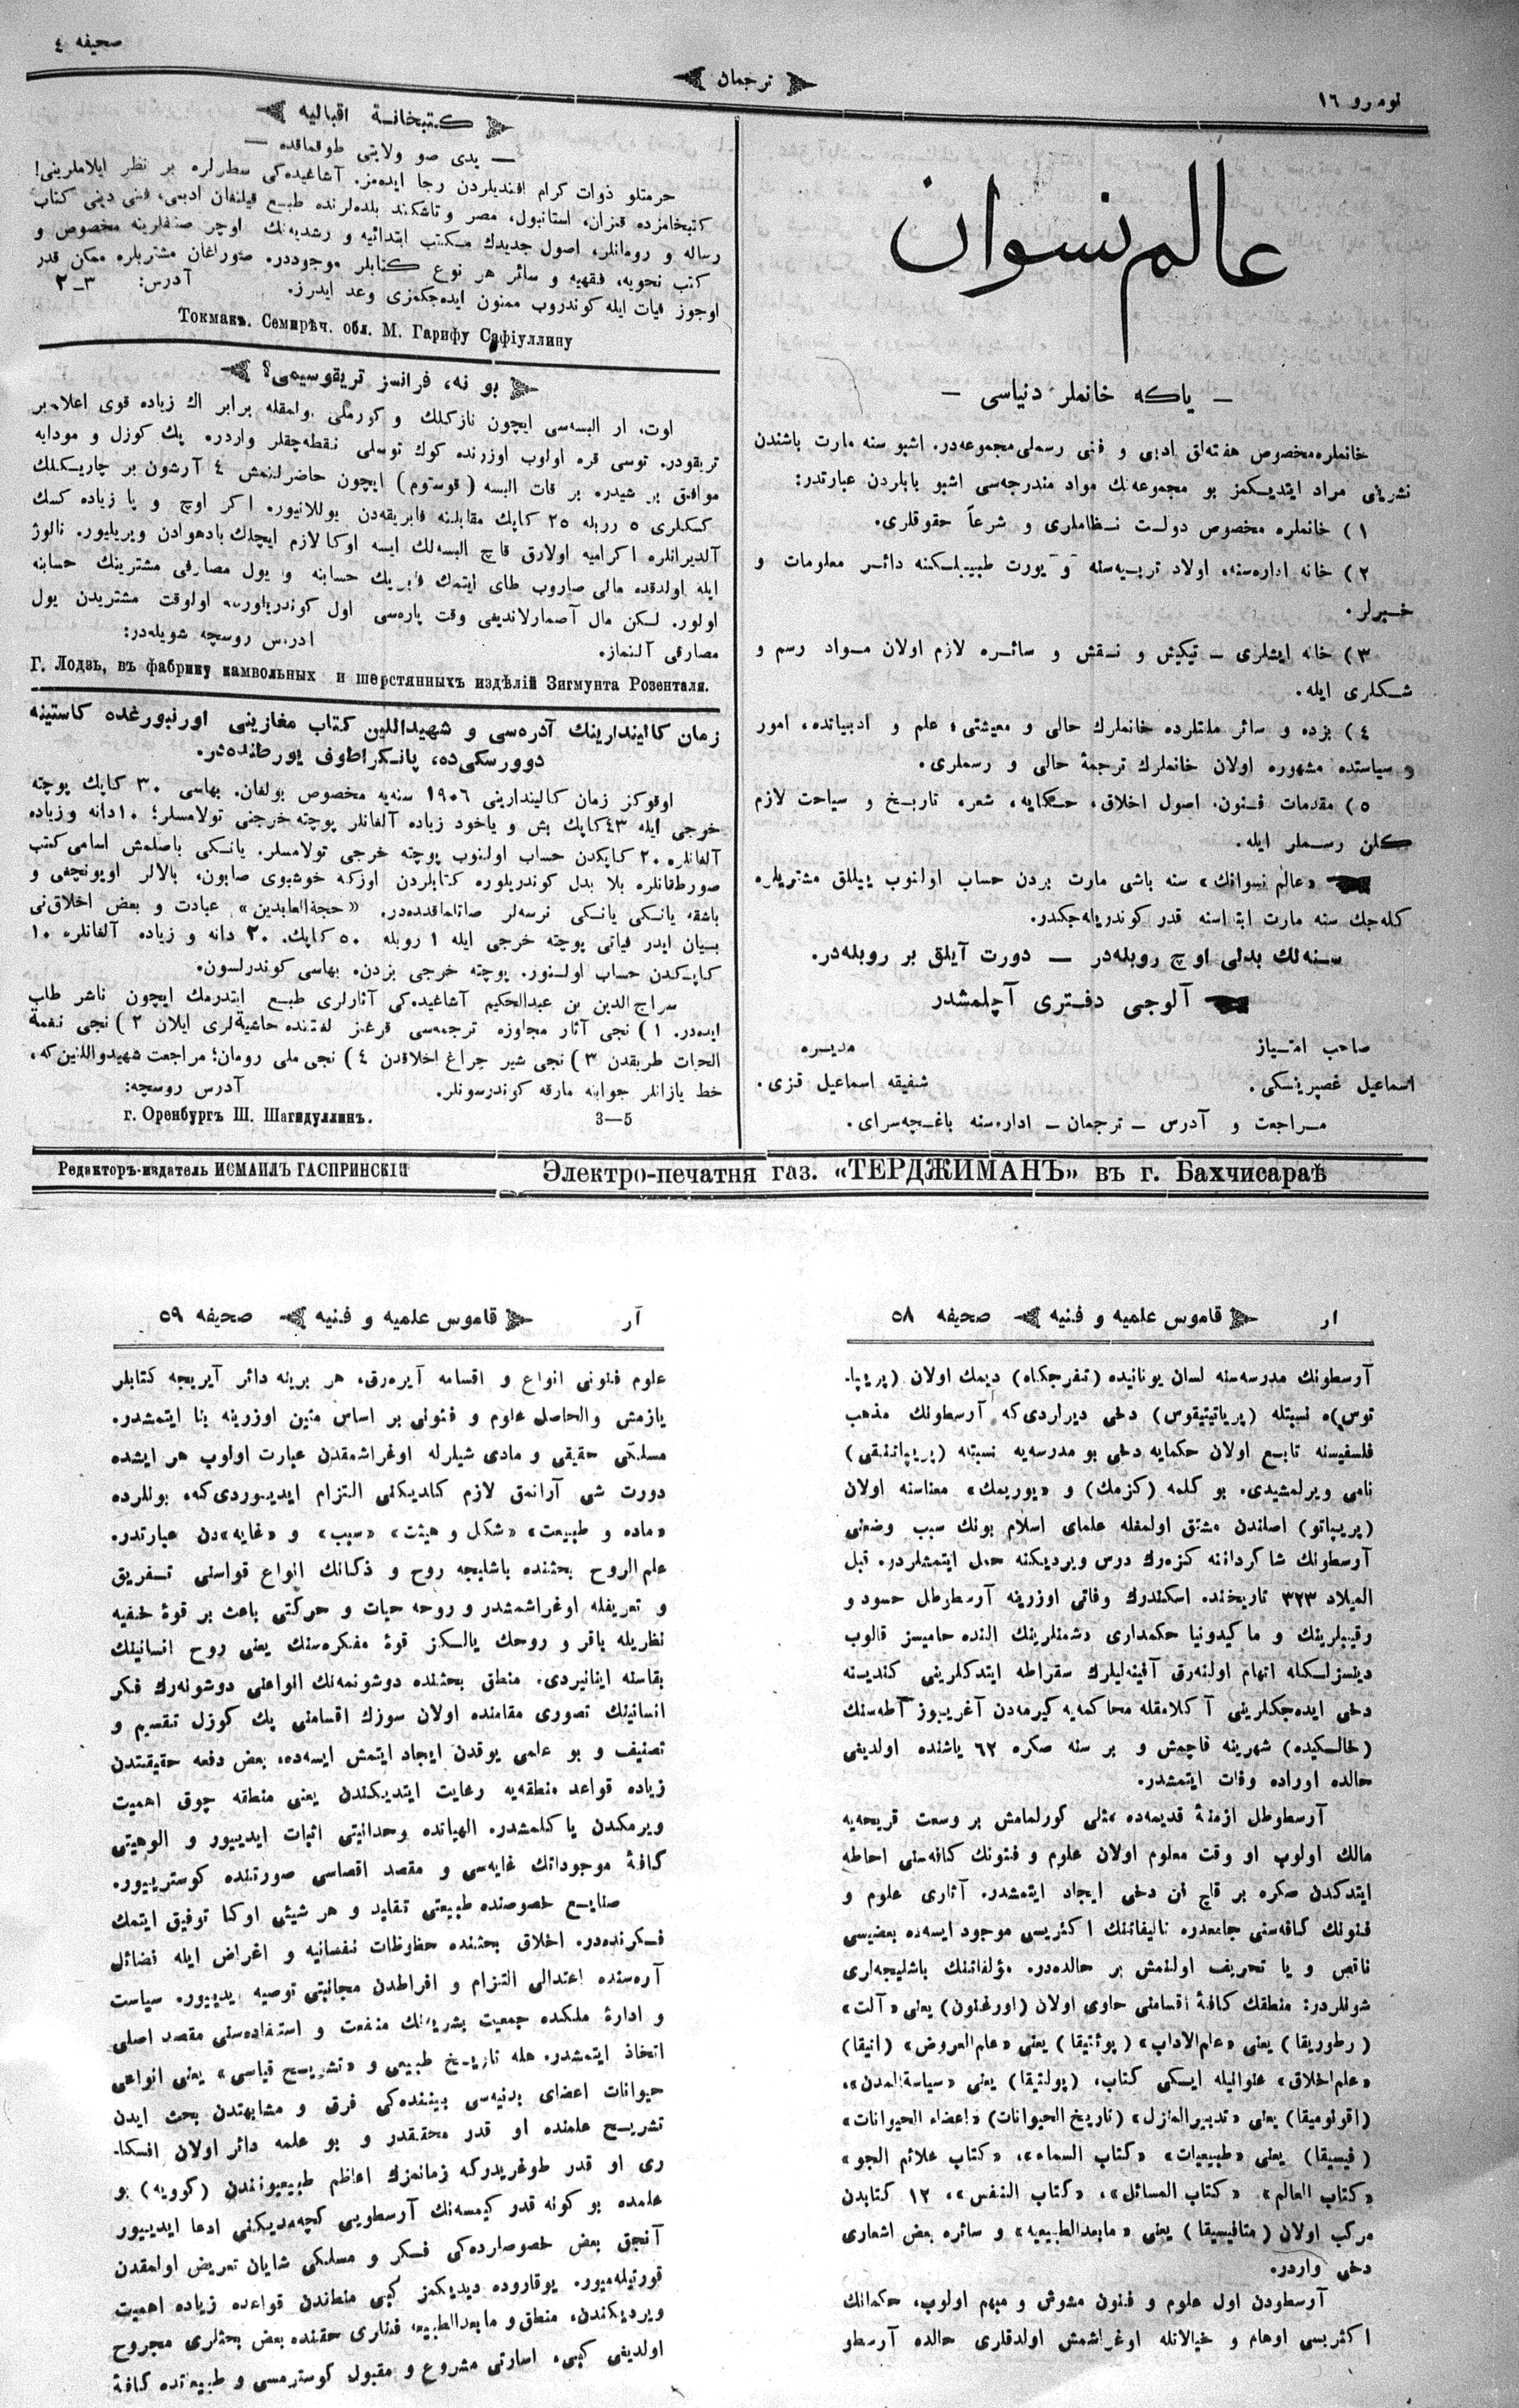 نومرو ١٦
ترجمان
صحیفه ٤
عالم نسوان
— یاكه خانملر دنیاسی —
خانملره مخصوص هفته‌لق ادبی و فنی رسملی مجموعه‌در. اشبو سنه مارت باشندن
نشرینی مراد ایتدیكمز بو مجموعه‌نك مواد مندرجه‌سی اشبو بابلردن عبارتدر:
١) خانملره مخصوص دولت نظاملری و شرعاً حقوقلری.
٢) خانه اداره‌سنه، اولاد تربیه‌سنه و یورت طبیبلكنه دائر معلومات و
خبرلر.
٣) خانه ایشلری — تیكیش و نقش و سائره لازم اولان مواد رسم و
شكلری ایله.
٤) بزده و سائر ملتلرده خانملرك حالی و معیشتی؛ علم و ادبیاتده، امور
و سیاستده مشهوره اولان خانملرك ترجمهٔ حالی و رسملری.
٥) مقدمات فنون، اصول اخلاق، حكایه، شعر، تاریخ و سیاحت لازم
كلن رسملر ایله.
«عالم نسوانك» سنه باشی مارت بردن حساب اولنوب ییللق مشتریلره
كله‌جك سنه مارت ابتداسنه قدر كوندریله‌جكدر.
سنه‌لك بدلی اوچ روبله‌در — دورت آیلق بر روبله‌در.
آلوجی دفتری آچلمشدر
صاحب امتیاز مدیره
اسماعیل غصپرینسكی. شفیقه اسماعیل قزی.
مراجعت و آدرس — ترجمان — اداره‌سنه باغچه‌سرای.
كتبخانهٔ اقبالیه
— یدی صو ولایتی طوقماقده —
حرمتلو ذوات كرام افندیلردن رجا ایده‌مز. آشاغیده‌كی سطرلره بر نظر ایلاملرینی!
كتبخامزده قزان، استانبول، مصر و تاشكند بلده‌لرنده طبع قیلنغان ادبی، فنی دینی كتاب
رساله و رومانلر، اصول جدیدك مكتب ابتدائیه و رشدیه‌نك اوچر صنفلرینه مخصوص و
كتب نحویه، فقهیه و سائر هر نوع كتابلر موجوددر. صوراغان مشتریلره ممكن قدر
اوجوز فیات ایله كوندروب ممنون ایده‌جكمزی وعد ایدرز. آدرس: ٣—٢
Токмакъ. Семирѣч. обл. М. Гарифу Сафіуллину
بو نه، فرانسز تریقوسیمی؟
اوت، ار البسه‌سی ایچون نازكلك و كورملی اولمقله برابر اك زیاده قوی اعلا بر
تریقودر. توسی قره اولوب اوزرنده كوك توسلی نقطه‌چقلر واردر. پك كوزل و مودایه
موافق بر شیدر. بر قات البسه (قوستوم) ایچون حاضرلنمش ٤ آرشون بر چاریكلك
كسكلری ٥ روبله ٢٥ كاپك مقابلنه فابریقه‌دن یوللانیور. اكر اوچ و یا زیاده كسك
آلدیرانلره اكرامیه اولارق قاچ البسه‌لك ایسه اوكا لازم ایچلك بادهوادن ویریلیور. نالوژ
ایله اولدقده مالی صاروب طای ایتمك فابریك حسابنه و یول مصارفی مشترینك حسابنه
اولور. لكن مال آصمارلاندیغی وقت پاره‌سی اول كوندریلورسه اولوقت مشتریدن یول
مصارفی آلنماز. ادرس روسچه شویله‌در:
Г. Лодзь, въ фабрику камвольныхъ и шерстянныхъ издѣлій Зигмунта Розенталя.
زمان كالیندارینك آدره‌سی و شهیداللین كتاب مغازینی اورنبورغده كاستینه
دوورسكی‌ده، پانكراطوف یورطنده‌در.
اوقوكز زمان كالیندارینی ١٩٠٦ سنه‌یه مخصوص بولغان. بهاسی ٣٠ كاپك پوچته
خرجی ایله ٤٣ كاپك بش و یاخود زیاده آلغانلر پوچته خرجنی تولامسلر؛ ١٠ دانه و زیاده
آلغانلره ٢٠ كاپكدن حساب اولنوب پوچته خرجی تولامسلر. یانكی باصلمش اسامی كتب
صورطغانلره بلا بدل كوندریلور. كتابلردن اوزكه خوشبوی صابون، بالالر اویونچغی و
باشقه یانكی یانكی نرسه‌لر صاتلماقده‌در. «حجة العابدین» عبادت و بعض اخلاق‌نی
بیان ایدر فیاتی پوچته خرجی ایله ١ روبله ٥٠ كاپك. ٢٠ دانه و زیاده آلغانلره ١٠
كاپكدن حساب اولنور. پوچته خرجی بزدن. بهاسی كوندرلسون.
سراج الدین بن عبدالحكیم آشاغیده‌كی آثارلری طبع ایتدرمك ایچون ناشر طلب
ایده‌در. ١) نجی آثار مجاوزه ترجمه‌سی قرغز لغتنده حاشیه‌لری ایلان ٢) نجی نغمة
الحیات طریقدن ٣) نجی شیر چراغ اخلاقدن ٤) نجی ملی رومان؛ مراجعت شهیدوالنین‌كه،
خط یازانلر جوابنه مارقه كوندرسونلر. آدرس روسچه:
г. Оренбургъ Ш. Шагидуллинъ. 3—5
Редакторъ-издатель ИСМАИЛЪ ГАСПРИНСКІЙ Электро-печатня газ. «ТЕРДЖИМАНЪ» въ г. Бахчисараѣ
ار قاموس علمیه و فنیه صحیفه ٥٨
آرسطونك مدرسه‌سنه لسان یونانیده (تنفرجكاه) دیمك اولان (پریپا-
توس)ه نسبتله (پریپاتیتیقوس) دخی دیرلردی‌كه آرسطونك مذهب
فلسفیسنه تابع اولان حكمایه دخی بو مدرسه‌یه نسبتله (پریپاتتیقی)
نامی ویرلمشیدی. بو كلمه (كزمك) و «یوریمك» معناسنه اولان
(پریپاتو) اصلندن مشتق اولمغله علمای اسلام بونك سبب وضعنی
آرسطونك شاكرداننه كزه‌رك درس ویردیكنه حمل ایتمشلردر. قبل
المیلاد ٣٢٣ تاریخنده اسكندرك وفاتی اوزرینه آرسطوطل حسود و
رقیبلرینك و ماكیدونیا حكمداری دشمنلرینك النده حامیسز قالوب
دینسزلكله اتهام اولنه‌رق آتینه‌لیلرك سقراطه ایتدكلرینی كندیسنه
دخی ایده‌جكلرینی آكلامقله محاكمه‌یه كیرمه‌دن آغریبوز آطه‌سنك
(خالكیده) شهرینه قاچمش و بر سنه صكره ٦٢ یاشنده اولدیغی
حالده اوراده وفات ایتمشدر.
آرسطوطل ازمنهٔ قدیمه‌ده مثلی كورلمامش بر وسعت قریحه‌یه
مالك اولوب او وقت معلوم اولان علوم و فنونك كافه‌سنی احاطه
ایتدكدن صكره بر قاچ فن دخی ایجاد ایتمشدر. آثاری علوم و
فنونك كافه‌سنی جامعدر. تالیفاتنك اكثریسی موجود ایسه‌ده بعضیسی
ناقص و یا تحریف اولنمش بر حالده‌در. مؤلفاتنك باشلیجه‌لری
شونلردر: منطقك كافهٔ اقسامنی حاوی اولان (اورغنون) یعنی «آلت»
(رطوریقا) یعنی «علم الاداب» (پوئتیقا) یعنی «علم العروض» (اتیقا)
«علم اخلاق» عنوانیله ایكی كتاب، (پولتیقا) یعنی «سیاسة المدن»،
(اقونومیقا) یعنی «تدبیر المنازل» (تاریخ الحیوانات) «اعضاء الحیوانات»
(فیسیقا) یعنی «طبیعیات» «كتاب السماء»، «كتاب علائم الجو»
«كتاب العالم» «كتاب المسائل»، «كتاب النفس»، ١٢ كتابدن
مركب اولان (متافیسیقا) یعنی «مابعدالطبیعیه» و سائره بعض اشعاری
دخی واردر.
آرسطودن اول علوم و فنون مشوش و مبهم اولوب، حكمانك
اكثریسی اوهام و خیالاتله اوغراشمش اولدقلری حالده آرسطو
آر قاموس علمیه و فنیه صحیفه ٥٩
علوم فنونی انواع و اقسامه آیره‌رق، هر برینه دائر آیریجه كتابلر
یازمش والحاصل علوم و فنونی بر اساس متین اوزرینه بنا ایتمشدر.
مسلكی حقیقی و مادی شیلرله اوغراشمقدن عبارت اولوب هر ایشده
دورت شی آرانمق لازم كلدیكنی التزام ایدیوردی‌كه، بونلرده
«ماده و طبیعت» «شكل و هیئت» «سبب» و «غایه»دن عبارتدر.
علم الروح بحثنده باشلیجه روح و ذكانك انواع قواسنی تفریق
و تعریفله اوغراشمشدر و روحه حیات و حركتی باعث بر قوهٔ خفیه
نظریله باقر و روحك یالكز قوهٔ مفكره‌سنك یعنی روح انسانینك
بقاسنه اینانیردی. منطق بحثنده دوشونمه‌نك انواعنی دوشونه‌رك فكر
انسانینك تصوری مقامنده اولان سوزك اقسامنی پك كوزل تقسیم و
تصنیف و بو علمی یوقدن ایجاد ایتمش ایسه‌ده، بعض دفعه حقیقتدن
زیاده قواعد منطقه‌یه رعایت ایتدیكندن یعنی منطقه چوق اهمیت
ویرمكدن یاكلمشدر. الهیاتده وحدانیتی اثبات ایدییور و الوهیتی
كافهٔ موجوداتك غایه‌سی و مقصد اقصاسی صورتنده كوسترییور.
صنایع خصوصنده طبیعتی تقلید و هر شیئی اوكا توفیق ایتمك
فكرنده‌در. اخلاق بحثنده حظوظات نفسانیه و اغراض ایله فضائل
آره‌سنده اعتدالی التزام و افراطدن مجانبتی توصیه ایدییور. سیاست
و ادارهٔ ملكده جمعیت بشریه‌نك منفعت و استفاده‌سنی مقصد اصلی
اتخاذ ایتمشدر. هله تاریخ طبیعی و «تشریح قیاسی» یعنی انواعی
حیوانات اعضای بدنیه‌سی بیننده‌كی فرق و مشابهتدن بحث ایدن
تشریح علمنده او قدر محققدر و بو علمه دائر اولان افكا-
ری او قدر طوغریدركه زمانمزك اعاظم طبیعیوننندن (كوویه) بو
علمده بو كونه قدر كیمسه‌نك آرسطویی كچه‌مدیكنی ادعا ایدییور
آنجق بعض خصوصلرده‌كی فكر و مسلكی شایان تعریض اولمقدن
قورتیله‌میور. یوقاروده دیدیكمز كبی منطقدن قواعده زیاده اهمیت
ویردیكندن، منطق و مابعدالطبیعه فنلری حقنده بعض بحثلری مجروح
اولدیغی كبی، اسارتی مشروع و مقبول كوسترمسی و طبیعتده كافهٔ